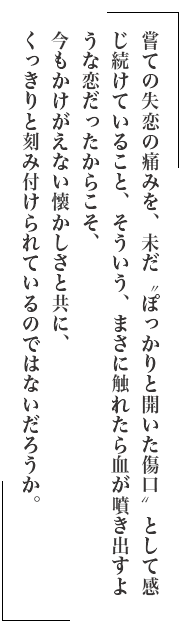 嘗ての失恋の痛みを、未だ〝ぽっかりと開いた傷口〟として感
じ続けていること、そういう、まさに触れたら血が噴き出すよ
うな恋だったからこそ、
今もかけがえない懐かしさと共に、
くっきりと刻み付けられているのではないだろうか。